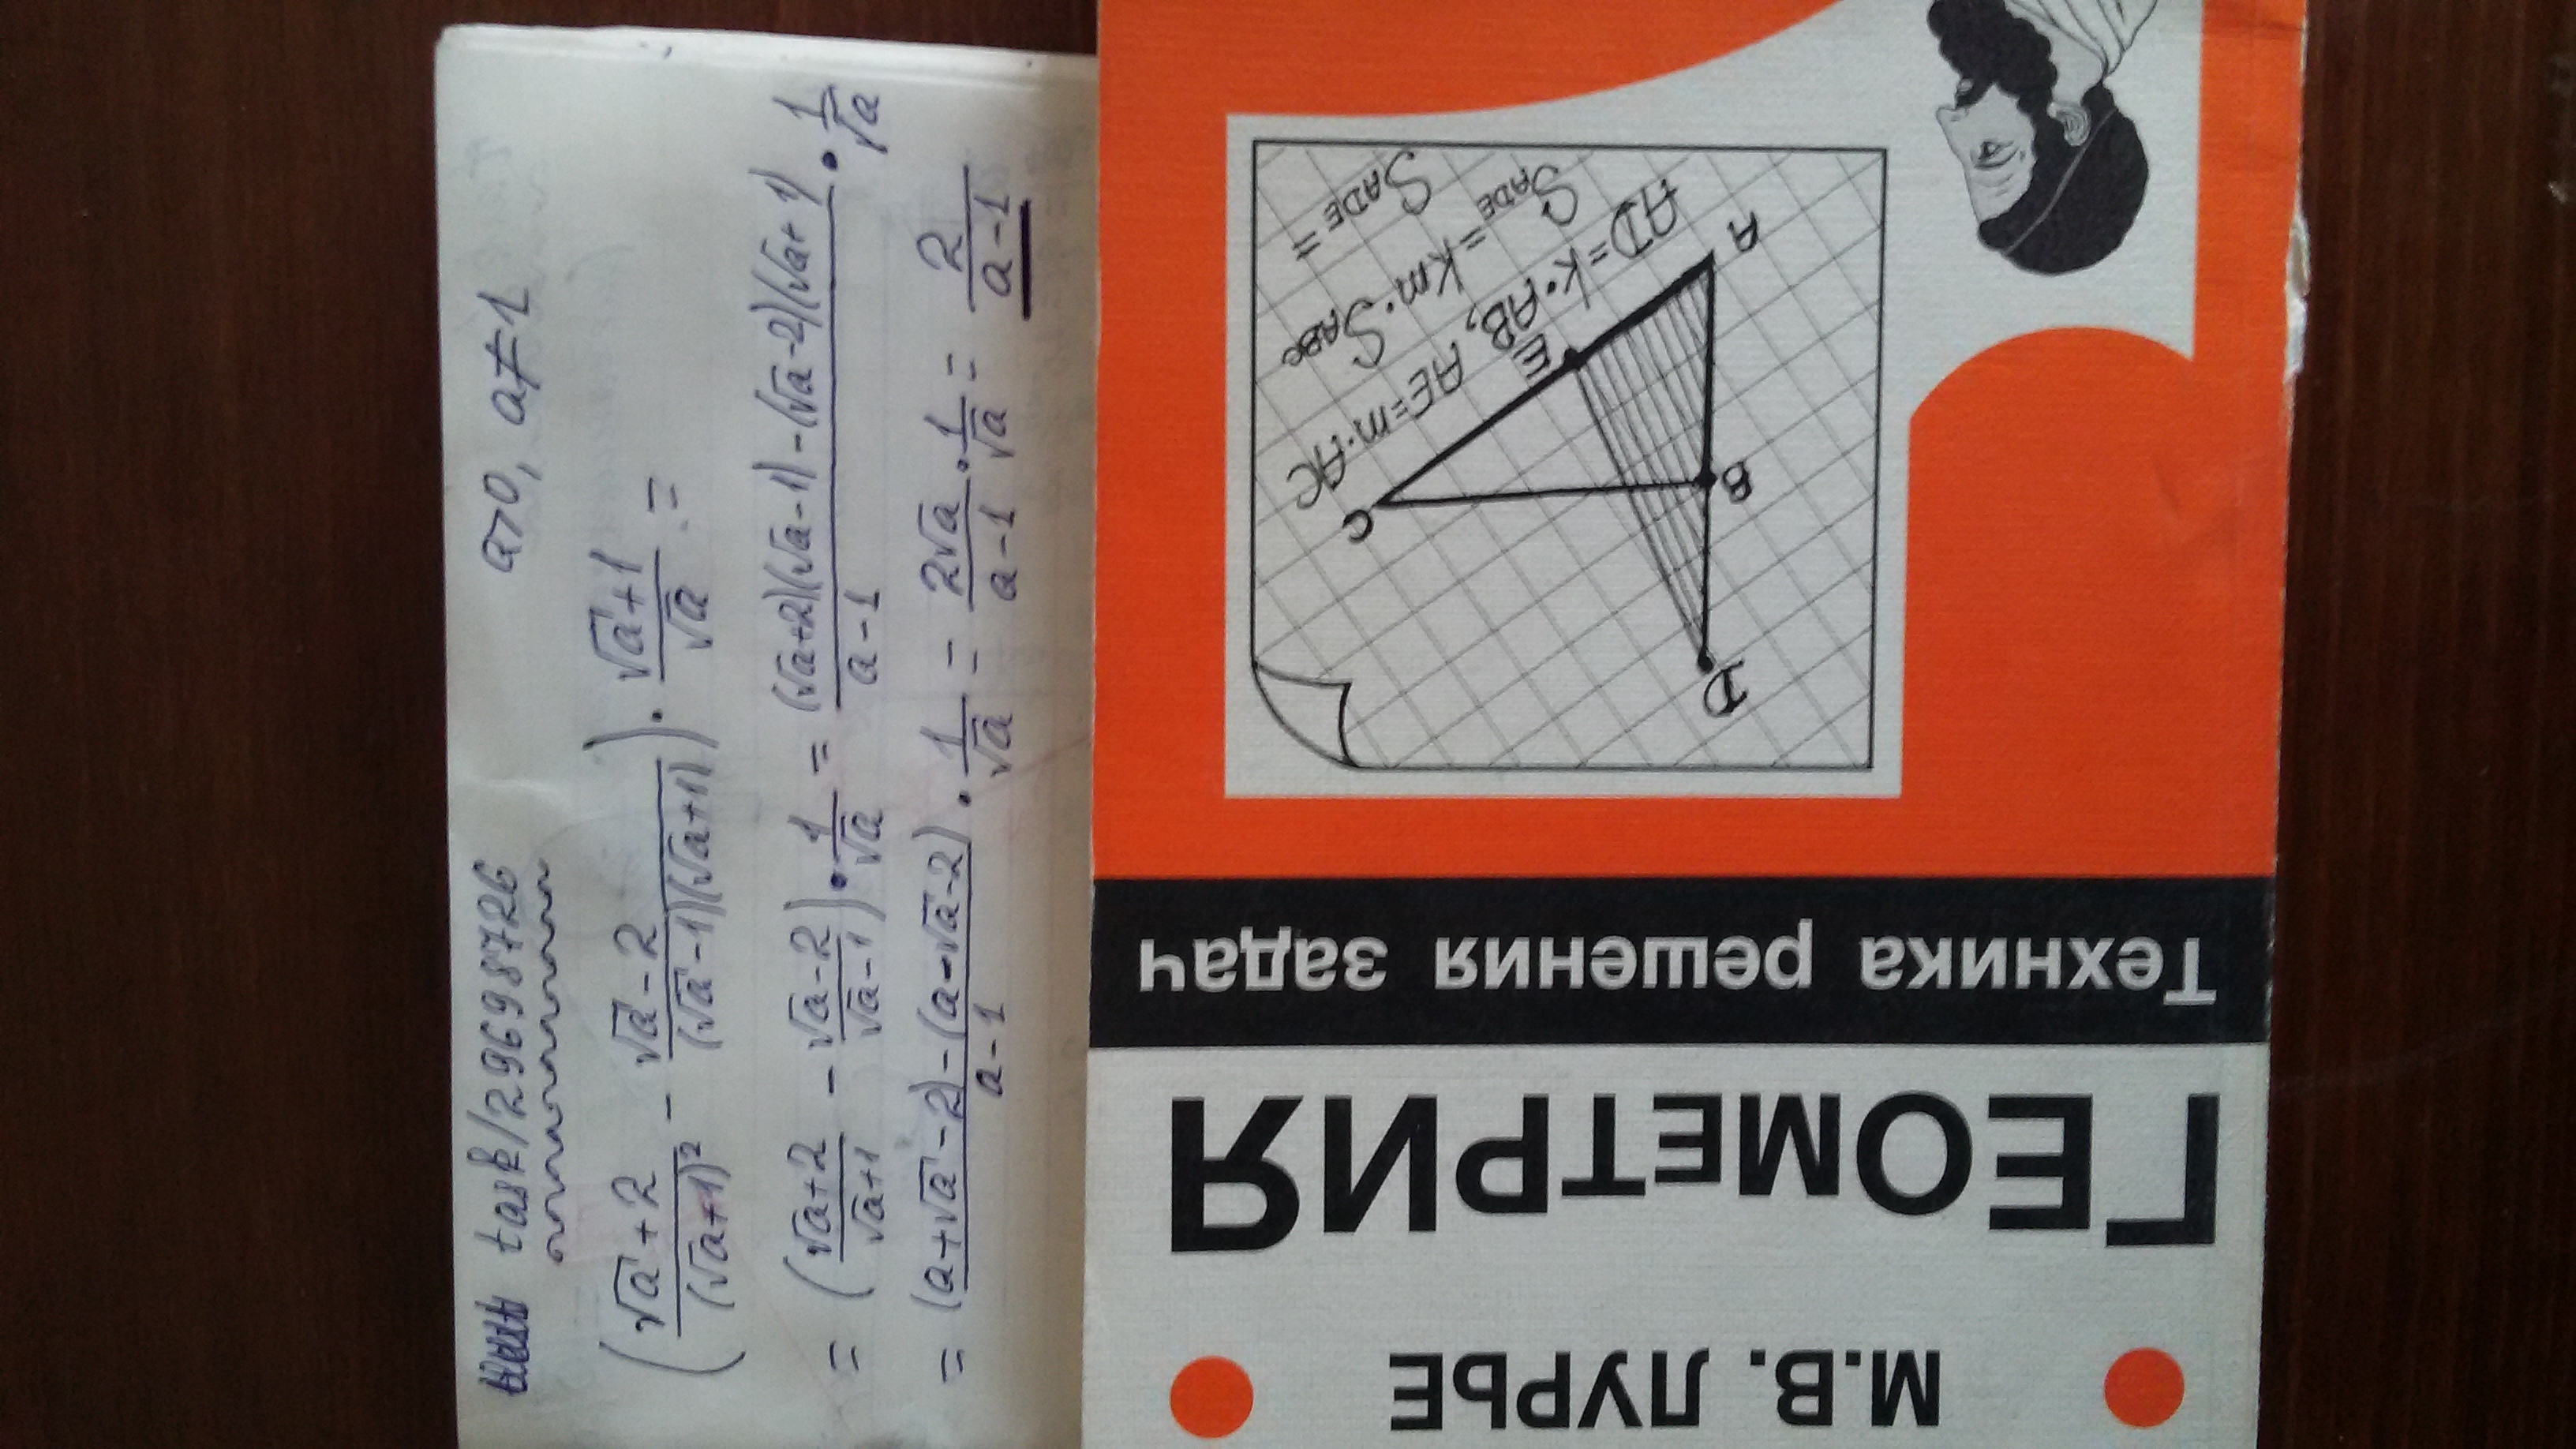 task/29698726 a>0, a≠1
((√a+2)/(√a+1)² - (√a-2)/((√a-1)(√a+1))) · (√a+1)/√a =
= ((√a+2)/(√a+1) - (√a-2)/(√a-1)) · 1/√a = ((√a+2)(√a-1) - (√a-2)(√a+1))/(a-1) · 1/√a
= ((a+√a-2) - (a-√a-2))/(a-1) · 1/√a = 2√a/(a-1) · 1/√a = 2/(a-1)
М.В. ЛУРЬЕ
ГЕОМЕТРИЯ
Техника решения задач
D
B
A
C
E
AD=k·AB, AE=m·AC
S_ADE = km·S_ABC
S_ADE =